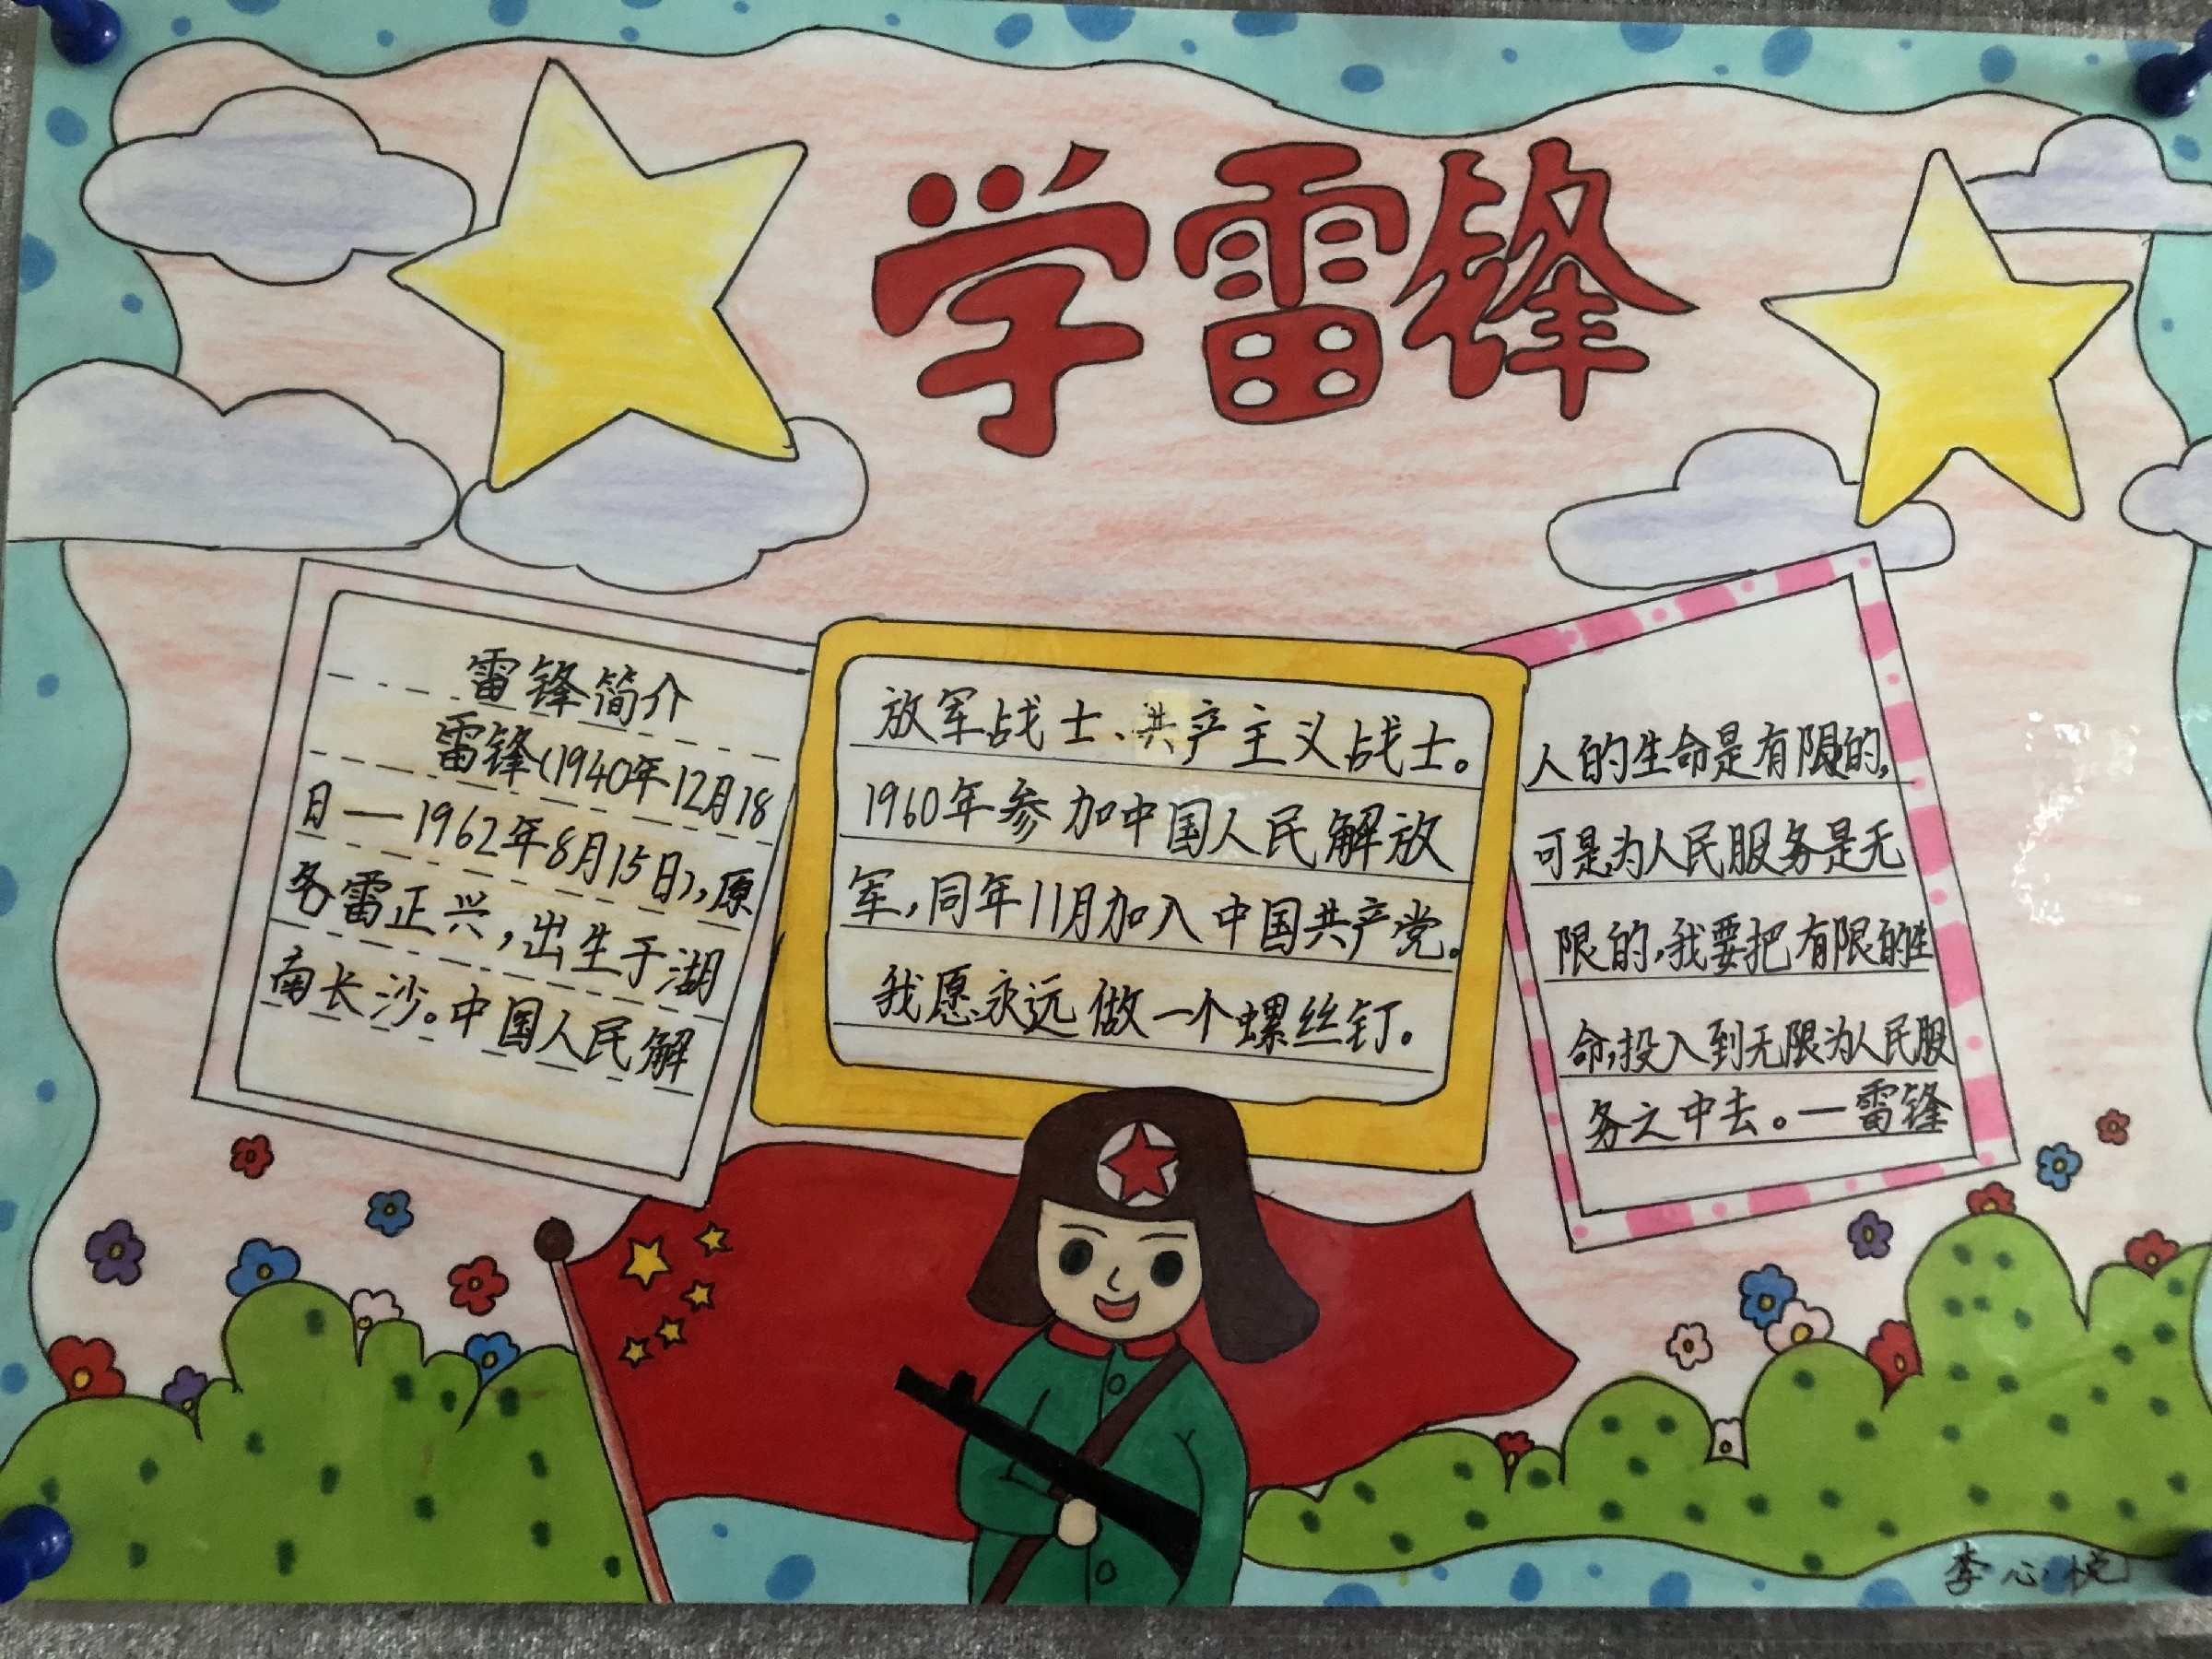 学雷锋
雷锋简介
雷锋(1940年12月18
日—1962年8月15日),原
名雷正兴,出生于湖
南长沙。中国人民解
放军战士、共产主义战士。
1960年参加中国人民解放
军,同年11月加入中国共产党。
我愿永远做一个螺丝钉。
人的生命是有限的,
可是,为人民服务是无
限的,我要把有限的生
命,投入到无限为人民服
务之中去。—雷锋
李心悦